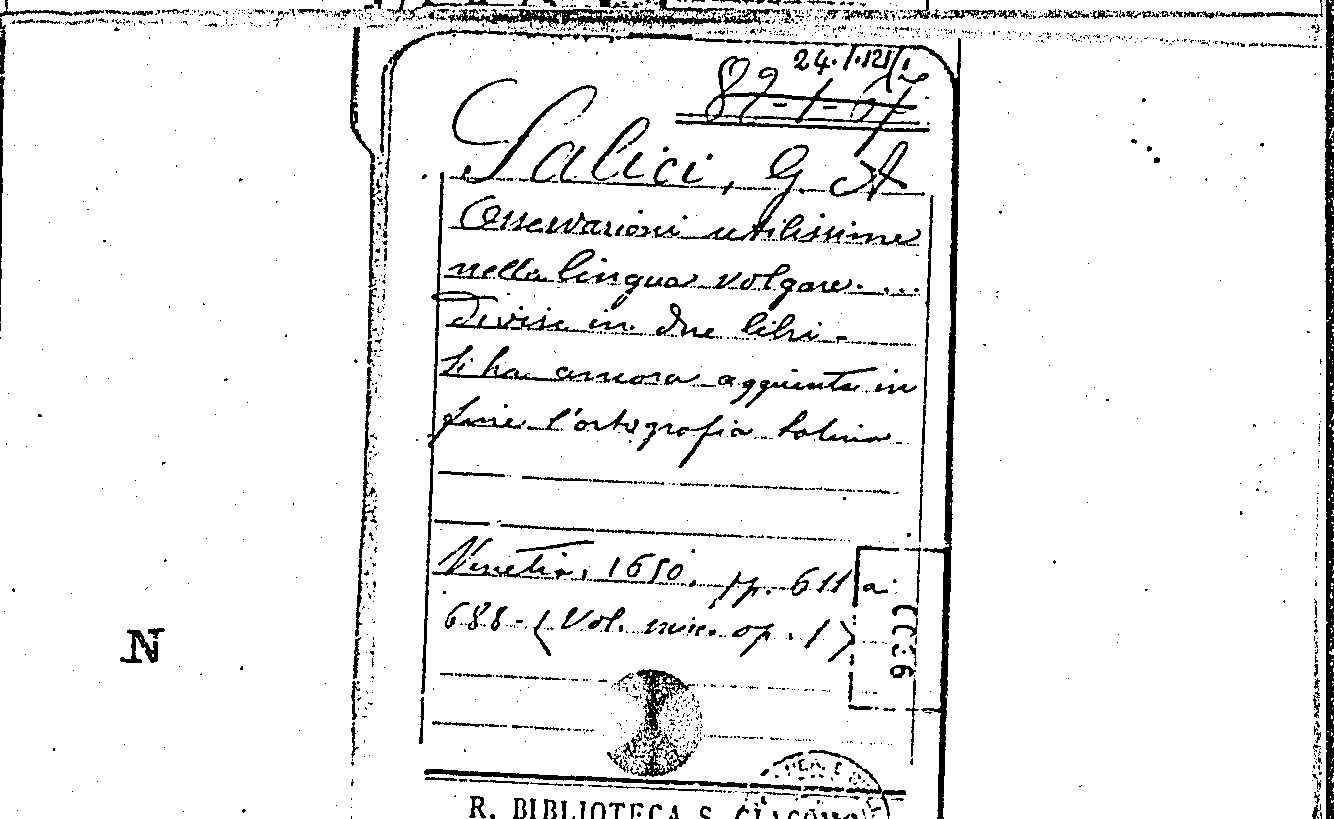 24.
82-1-67
Salici, G. A
Osservazioni utilissime
nella lingua volgare. ...
Divise in due libri.
Si ha ancora aggiunta in
fine l'ortografia latina
Venetia, 1650. pp. 611 a
688 - (Vol. misc. op. 1)
N
R. BIBLIOTECA S. GIACOMO